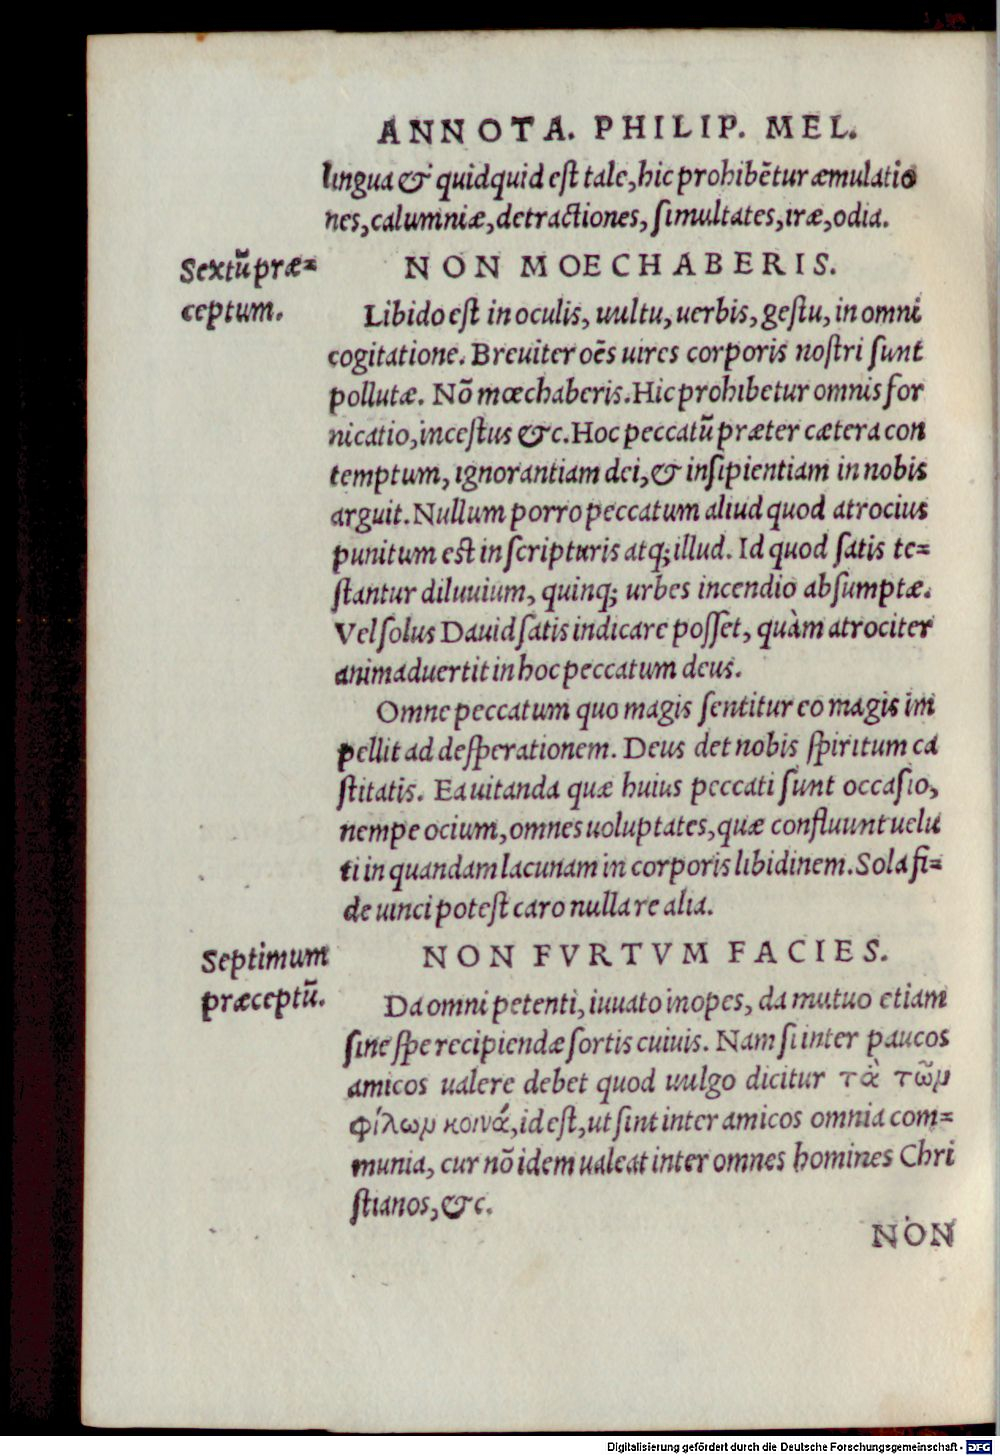 ANNOTA. PHILIP. MEL.
lingua & quidquid est tale, hic prohibētur æmulatio
nes, calumniæ, detractiones, simultates, iræ, odia.
Sextū præ=
ceptum.
NON MOECHABERIS.
Libido est in oculis, uultu, uerbis, gestu, in omni
cogitatione. Breuiter oēs uires corporis nostri sunt
pollutæ. Nō mœchaberis. Hic prohibetur omnis for
nicatio, incestus &c. Hoc peccatū præter cætera con
temptum, ignorantiam dei, & insipientiam in nobis
arguit. Nullum porro peccatum aliud quod atrocius
punitum est in scripturis atq; illud. Id quod satis te=
stantur diluuium, quinq; urbes incendio absumptæ.
Vel solus Dauid satis indicare posset, quàm atrociter
animaduertit in hoc peccatum deus.
Omne peccatum quo magis sentitur eo magis im
pellit ad desperationem. Deus det nobis spiritum ca
stitatis. Ea uitanda quæ huius peccati sunt occasio,
nempe ocium, omnes uoluptates, quæ confluunt uelu
ti in quandam lacunam in corporis libidinem. Sola fi=
de uinci potest caro nulla re alia.
Septimum
præceptū.
NON FVRTVM FACIES.
Da omni petenti, iuuato inopes, da mutuo etiam
sine spe recipiendæ sortis cuiuis. Nam si inter paucos
amicos ualere debet quod uulgo dicitur τὰ τῶν
φίλων κοινά, id est, ut sint inter amicos omnia com=
munia, cur nō idem ualeat inter omnes homines Chri
stianos, &c.
NON
Digitalisierung gefördert durch die Deutsche Forschungsgemeinschaft - DFG